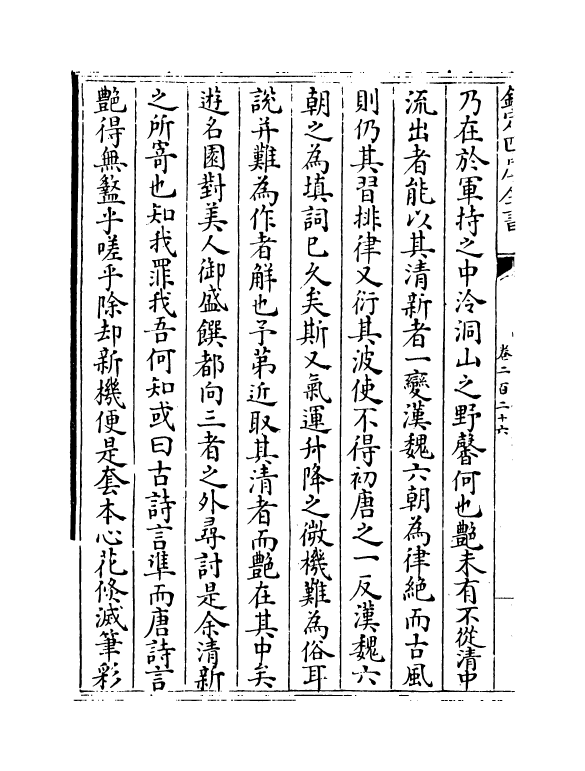 欽定四庫全書
卷二百二十六
乃在於軍持之中泠洞山之野罄何也艷未有不從清中
流出者能以其清新者一變漢魏六朝為律絕而古風
則仍其習排律又衍其波使不得初唐之一反漢魏六
朝之為填詞已久矣斯又氣運升降之微機難為俗耳
說并難為作者解也予第近取其清者而艷在其中矣
遊名園對美人御盛饌都向三者之外尋討是余清新
之所寄也知我罪我吾何知或曰古詩言準而唐詩言
艷得無盭乎嗟乎除却新機便是套本心花倏滅筆彩